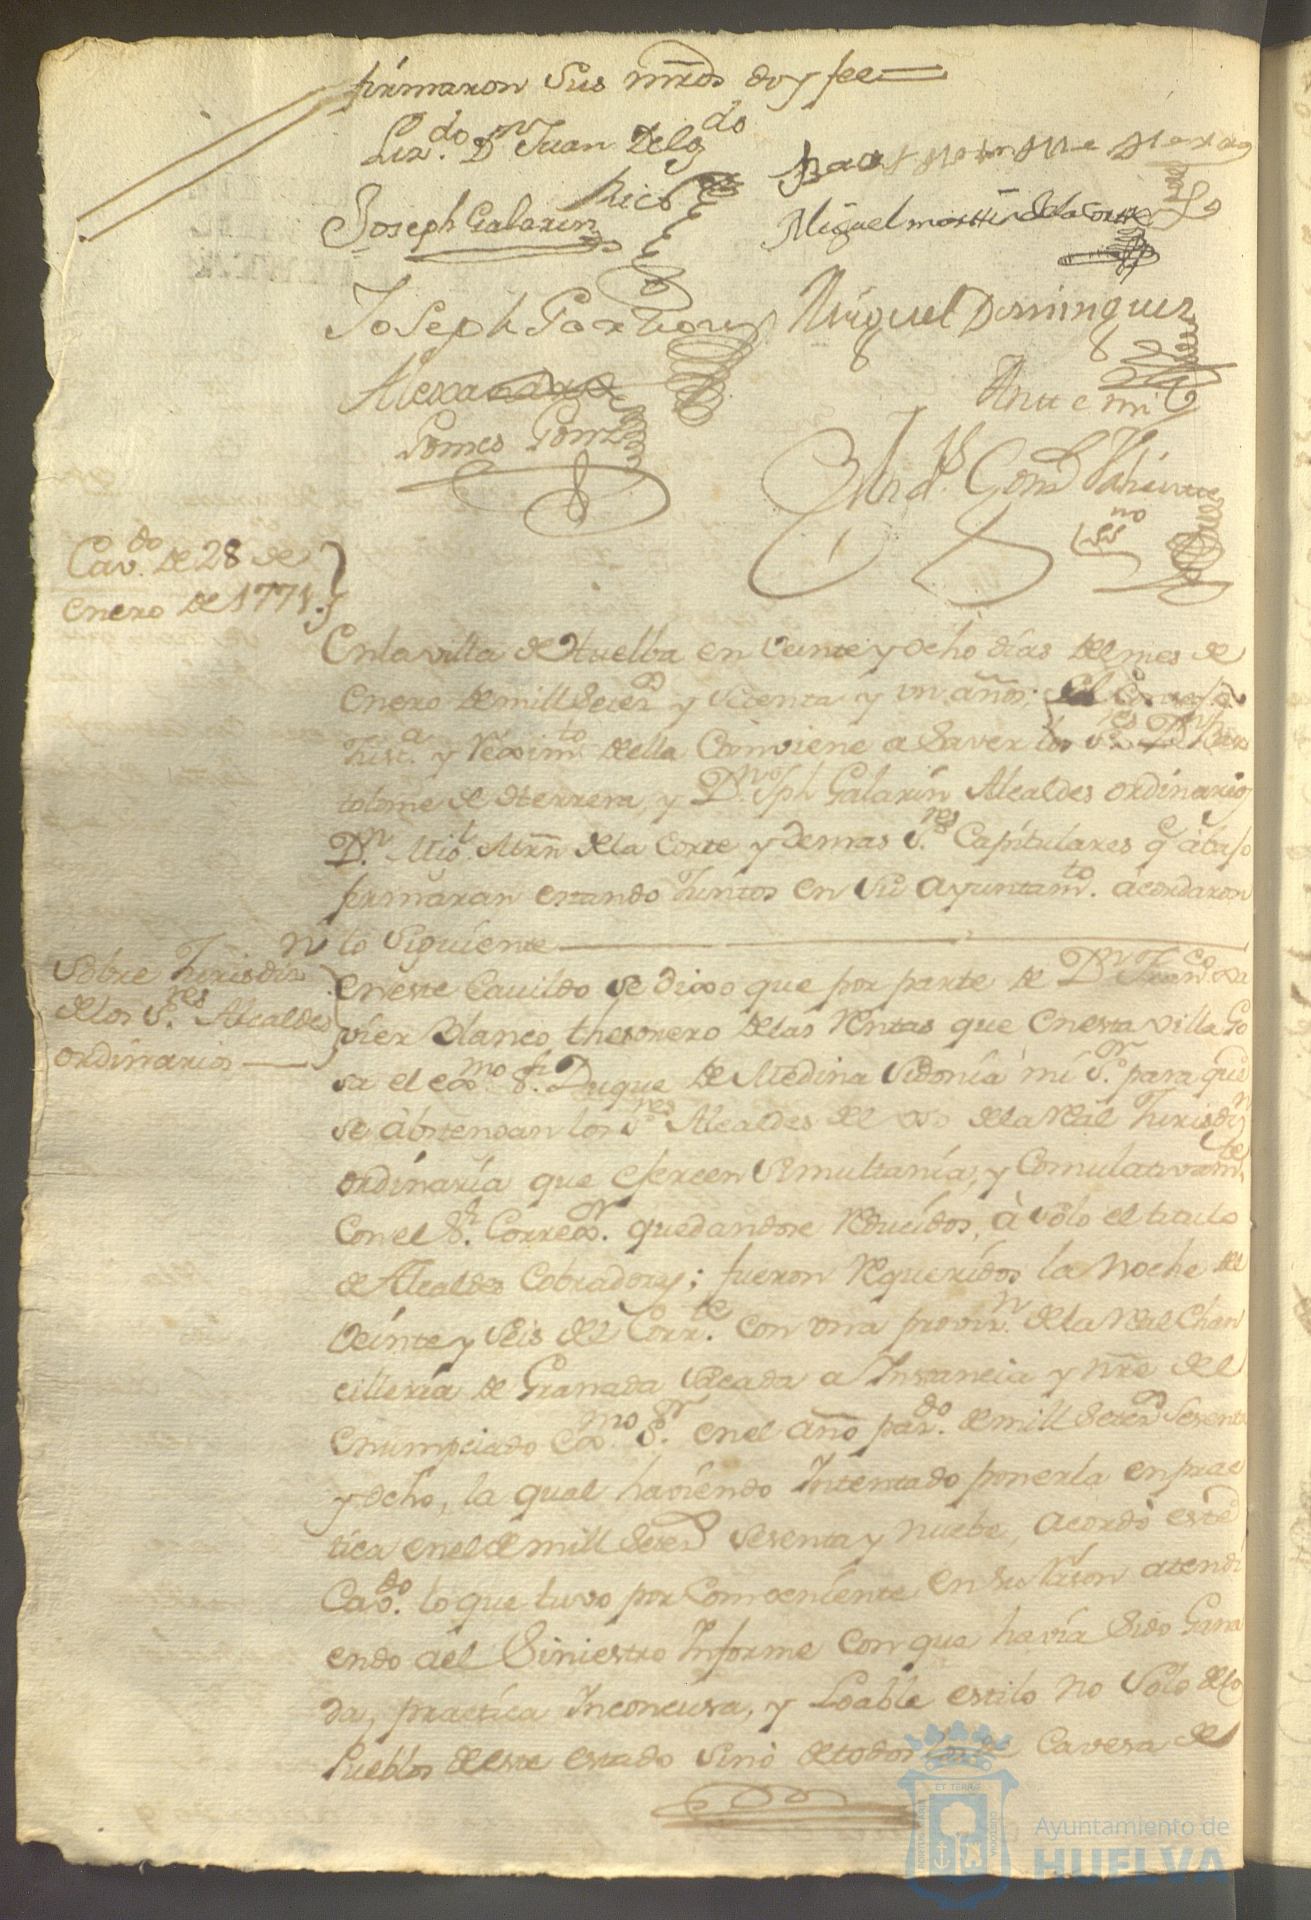 firmaron Sus mrds doy fee
Liz.do Dn Juan Delgdo
Rico
Joseph Galarin
Miguel martin de la corte
Joseph
Miguel Dominguez
Alexandro
Gomes
Antte mi
ss.no
Cav.do de 28 de
enero de 1771.
En la villa de Huelba en veinte y ocho dias del mes de
Enero de mill Setes y setenta y un años; El Consejo
Just.a y reximto della Combiene a Saver los S.res Dn Bar
tolome de Herrera, y D.n Jph Galarin Alcaldes ordinarios
D.n Migl Mrn de la Corte y demas S.res Capitulares q abajo
firmaran estando Juntos en Su Ayuntamto. acordaron
lo Siguiente
Sobre Jurisdizn
de los S.res Alcaldes
ordinarios
En este Cavildo se dixo que por parte de Dn Franco xa
vier Blanco thesorero de las rentas que en esta villa Go
sa el exmo Sr. Duque de Medina Sidonia mi Sr. para que
se abstengan los S.res Alcaldes del uso de la real Jurisdizn
ordinaria que exercen Simultania, y Comulativamte
con el Sr. Correxr. quedandose reducidos, à sólo el titulo
de Alcaldes Cobradores; fueron requeridos la noche del
veinte y seis del Corrte. con una provisn. de la real Chan
cilleria de Granada sacada a Instancia y nre del
enumpciado Exmo Sr. en el año pasdo. de mill Setes Sesenta
y ocho, la qual haviendo Intentado ponerla en prac
tica en el de mill Setes sesenta y nuebe, acordó este
Cavdo. lo que tuvo por Combeniente en su rason atendi
endo a el Siniestro Informe con que havia Sido Gana
da, practica Inconcusa, y Loable estilo no Sólo de los
Pueblos de este estado Sino de todos los de Cavesa de
Ayuntamiento de
HUELVA